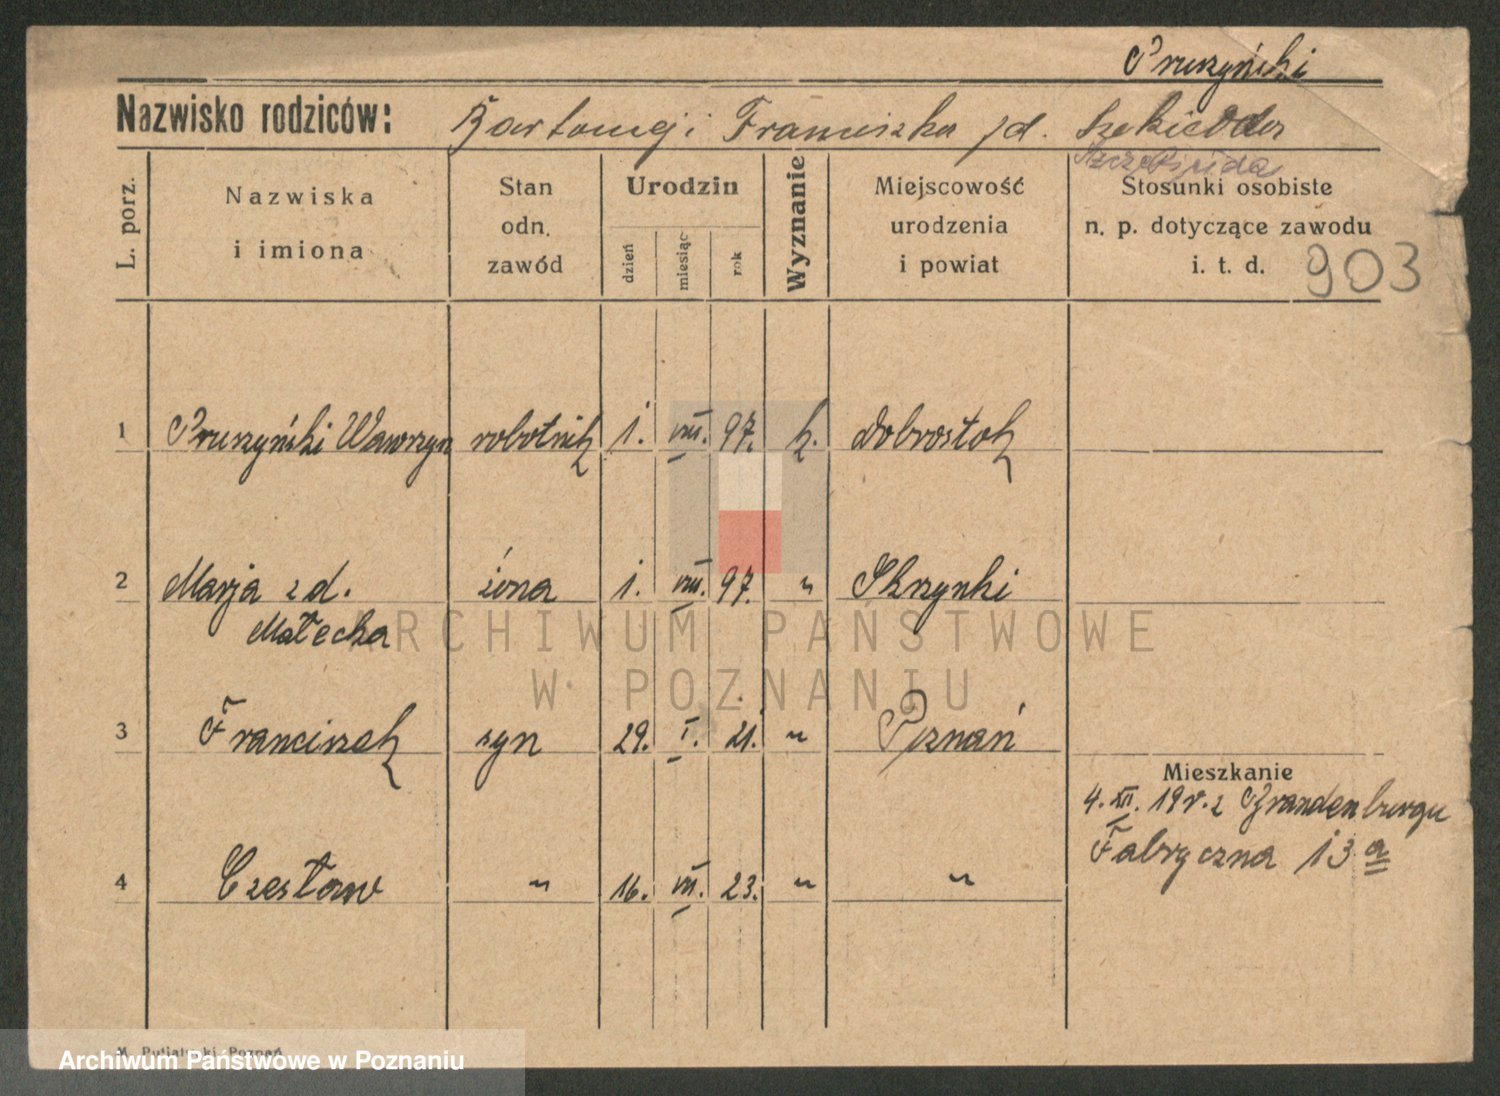 Pruszyński
Nazwisko rodziców: Bartomej i Franciszka zd.
L. porz.
Nazwiska i imiona
Stan odn. zawód
Urodzin
dzień
miesiąc
rok
Wyznanie
Miejscowość urodzenia i powiat
Stosunki osobiste n. p. dotyczące zawodu i. t. d.
903
1 Pruszyński Wawrzyn robotnik 1. VIII. 97. k. Dobrostok
2 Marja z d. żona 1. VIII. 97. " Skrzynki
Małecka
3 Franciszek syn 29. I. 21. " Poznań
Mieszkanie
4. XII. 19 r. z Brandenburgu
Fabryczna 13 a
4 Czesław " 16. VII. 23. " "
ARCHIWUM PAŃSTWOWE
W POZNANIU
M. Putiatycki, Poznań
Archiwum Państwowe w Poznaniu